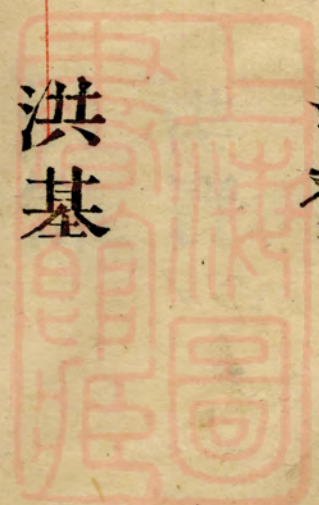 洪基
上海圖
書館藏